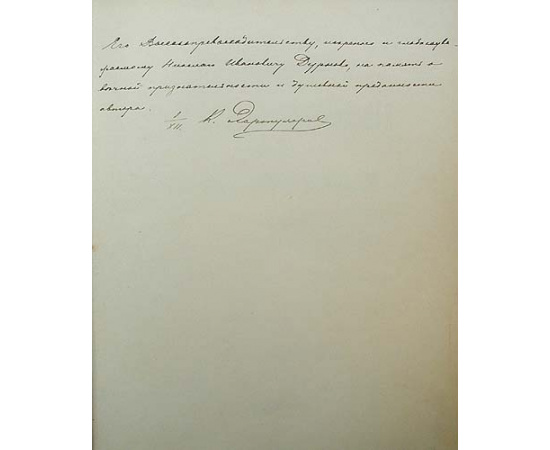 Его Высокопревосходительству, искренно и глубокоува-
жаемому Николаю Ивановичу Дурново, на память о
вечной признательности и душевной преданности
автора.
1/XII. К.